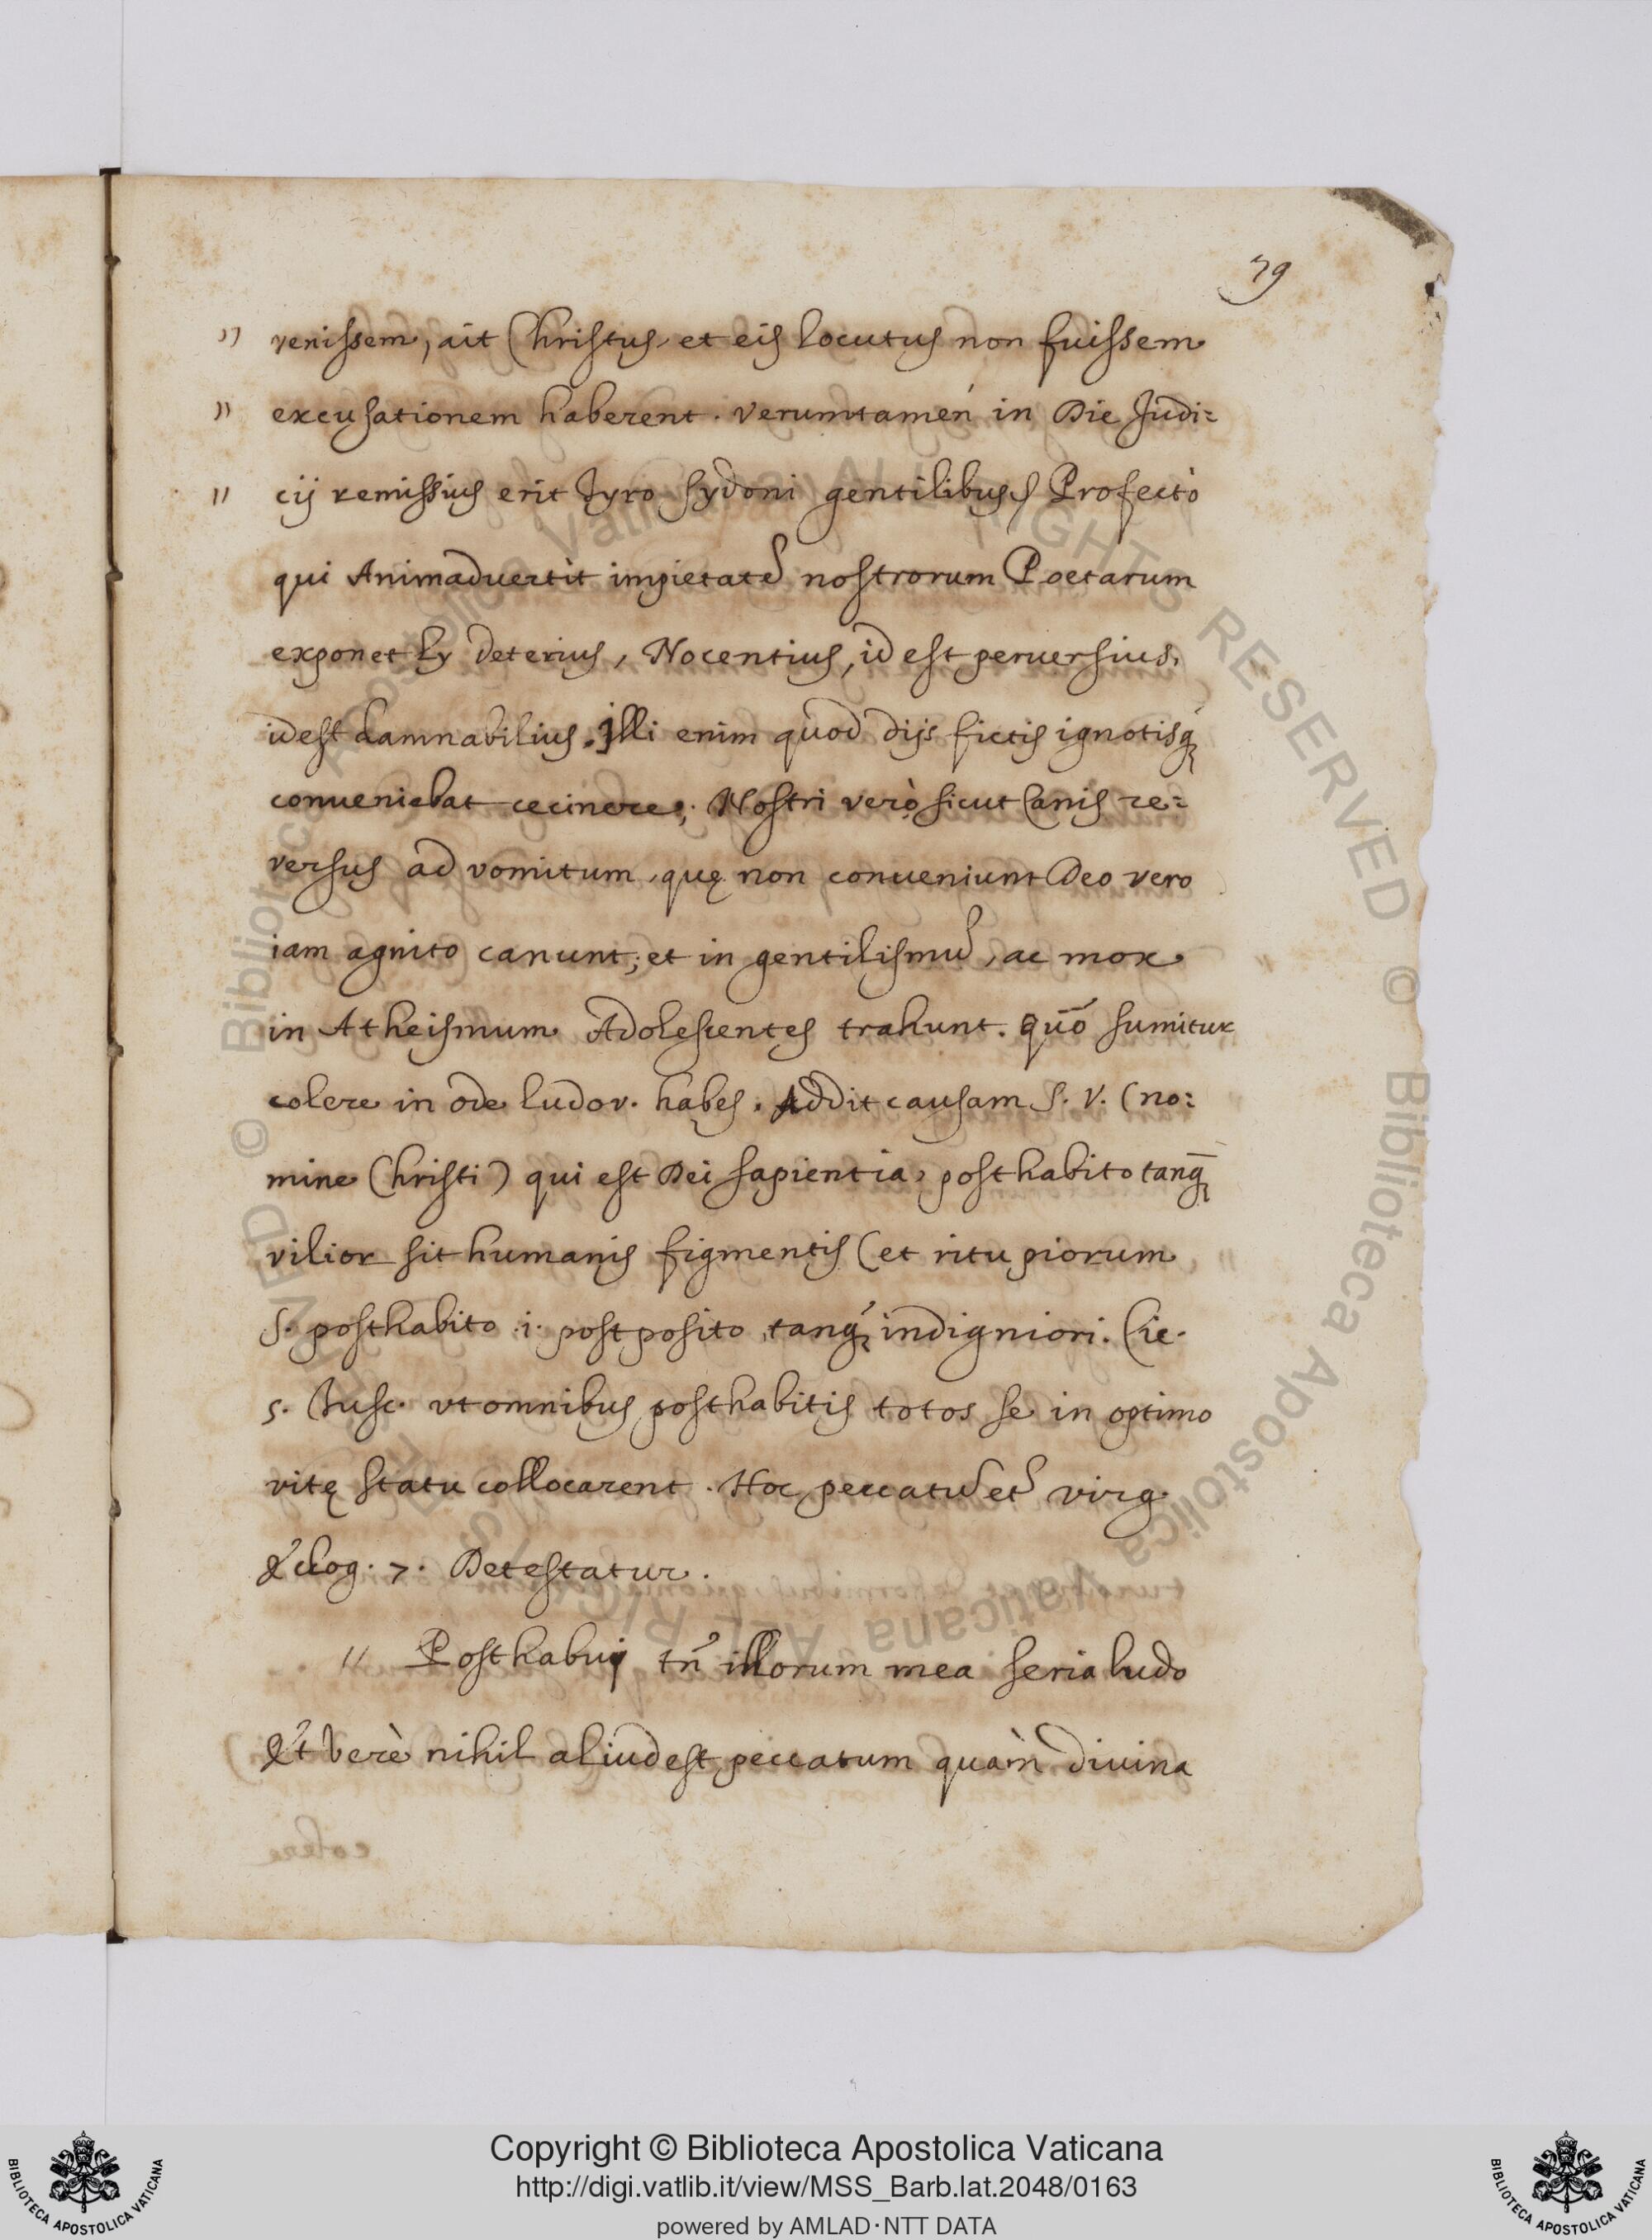 79
" venissem, ait Christus, et eis locutus non fuissem
" excusationem haberent. Verumtamen in Die Judi=
" cij remissius erit Tyro Sydoni gentilibus; Profectò
qui Animaduertit impietatē nostrorum Poetarum
exponet ly deterius, Nocentius, id est peruersius,
idest damnabilius. illi enim quod dijs fictis ignotisq;
conueniebat cecinere; Nostri verò sicut Canis re=
versus ad vomitum, quę non conueniunt Deo vero
iam agnito canunt; et in gentilismū, ac mox
in Atheismum Adolescentes trahunt. quō sumitur
colere in ode ludov. habes. Addit causam S. V. (no:
mine Christi) qui est Dei sapientia, posthabito tanq̄
vilior sit humanis figmentis (et ritu piorum
S. posthabito .i. postposito, tanq̄ indigniori. Cic.
5. Tusc. vt omnibus posthabitis totos se in optimo
vitę statu collocarent. Hoc peccatū et̄ virg.
Eclog. 7. Detestatur.
" Posthabui tn̄ illorum mea seria ludo
Et verè nihil aliud est peccatum quàm divina
© Biblioteca Apostolica Vaticana ALL RIGHTS RESERVED © Biblioteca Apostolica Vaticana ALL RIGHTS RESERVED
Copyright © Biblioteca Apostolica Vaticana
http://digi.vatlib.it/view/MSS_Barb.lat.2048/0163
powered by AMLAD·NTT DATA
BIBLIOTECA APOSTOLICA VATICANA
BIBLIOTECA APOSTOLICA VATICANA